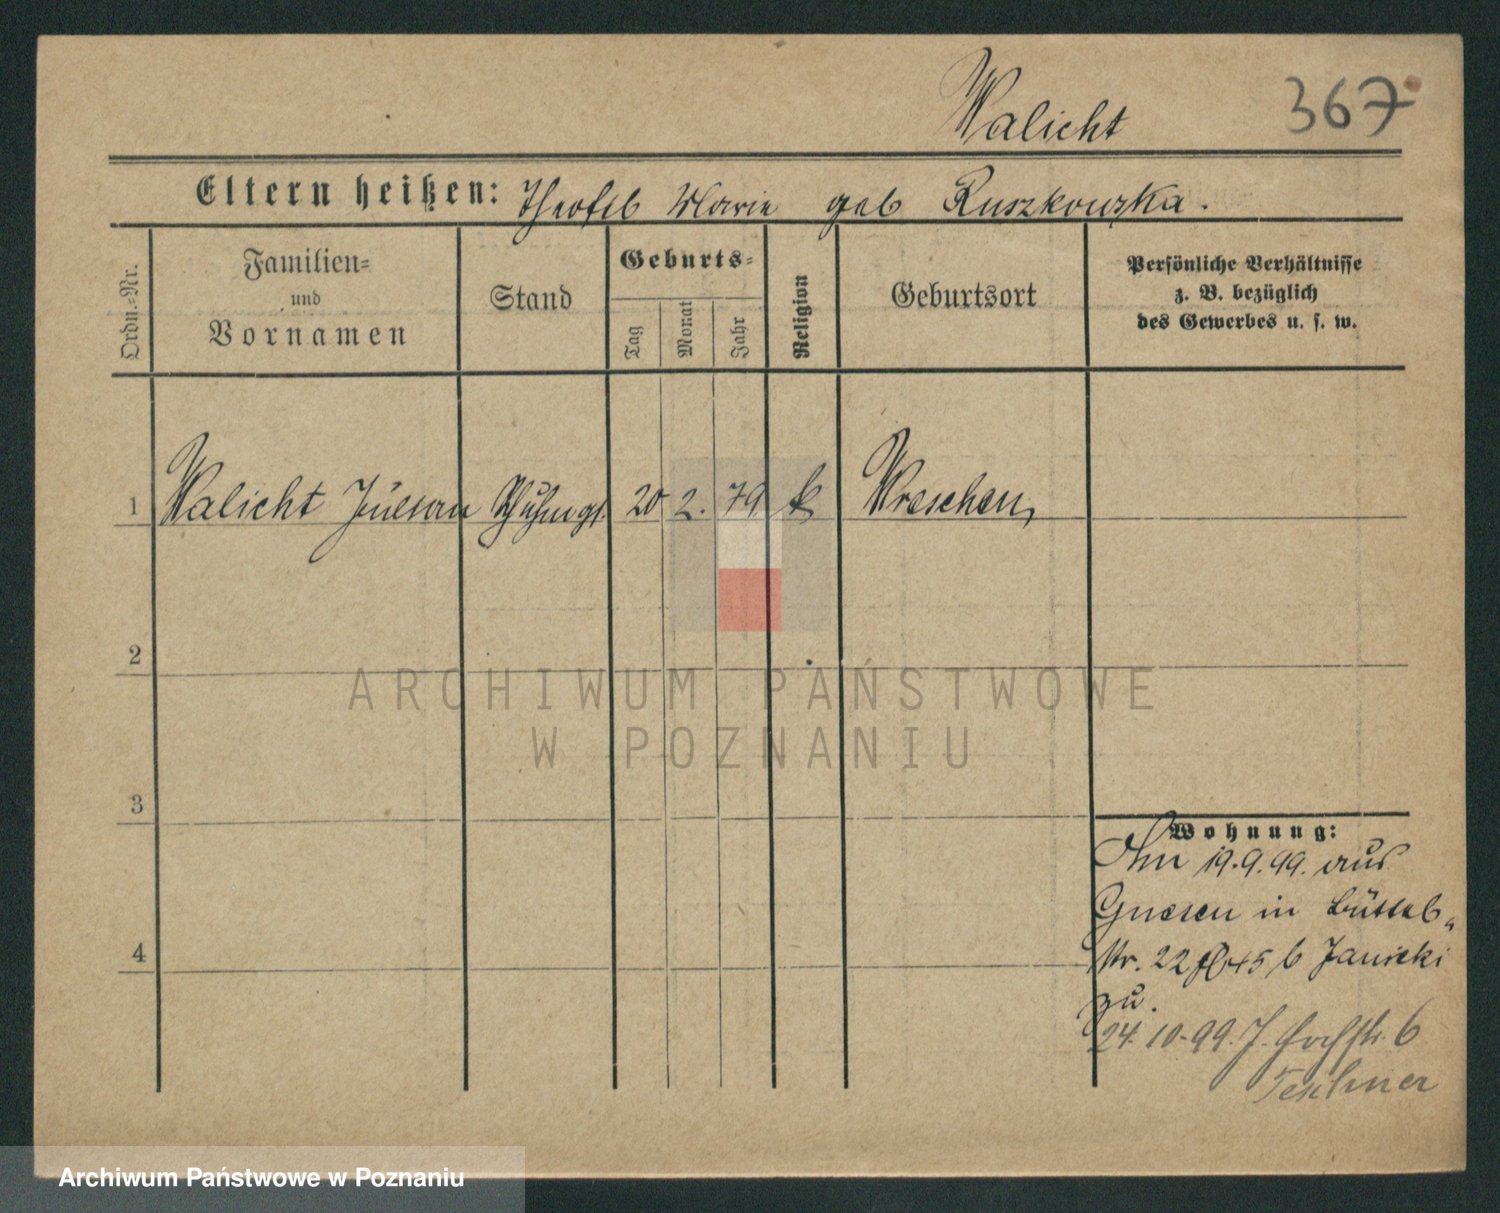 Walicht 367
Eltern heißen: Theofil Marie geb Ruszkowzka.
Ordn.-Nr. Familien- und Vornamen Stand Geburts- Tag Monat Jahr Religion Geburtsort Persönliche Verhältnisse z. B. bezüglich des Gewerbes u. s. w.
1 Walicht Julian Schuhmgs. 20 2. 79 k Wreschen
2
ARCHIWUM PAŃSTWOWE
W POZNANIU
3
Wohnung:
Am 19.9.99. aus
Gnesen in Büttel-
4
str. 22 b Janicki
zu.
24. 10.99. J. 6
Archiwum Państwowe w Poznaniu